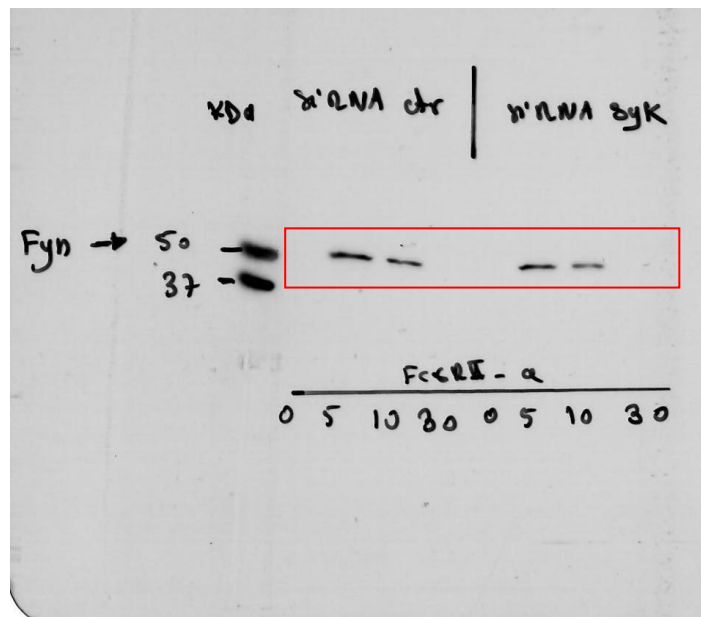 KDa siRNA ctr | siRNA Syk
Fyn → 50 –
37 –
FcɛRII - a
0 5 10 30 0 5 10 30